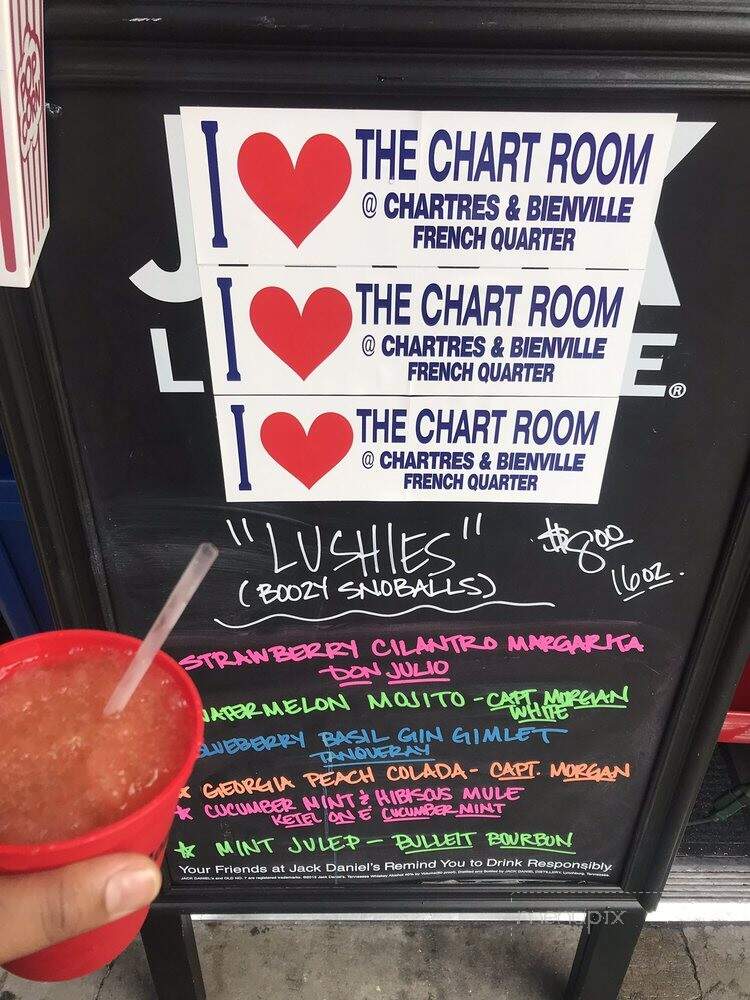 POP
CORN
I THE CHART ROOM
@ CHARTRES & BIENVILLE
FRENCH QUARTER
I THE CHART ROOM
@ CHARTRES & BIENVILLE
FRENCH QUARTER
I THE CHART ROOM
@ CHARTRES & BIENVILLE
FRENCH QUARTER
L E®
"LUSHIES" $8.00
(BOOZY SNOBALLS) 16oz.
STRAWBERRY CILANTRO MARGARITA
DON JULIO
WATERMELON MOJITO - CAPT MORGAN
WHITE
BLUEBERRY BASIL GIN GIMLET
TANQUERAY
GEORGIA PEACH COLADA - CAPT. MORGAN
CUCUMBER MINT & HIBISCUS MULE
KETEL ONE CUCUMBER MINT
MINT JULEP - BULLEIT BOURBON
Your Friends at Jack Daniel's Remind You to Drink Responsibly.
menupix